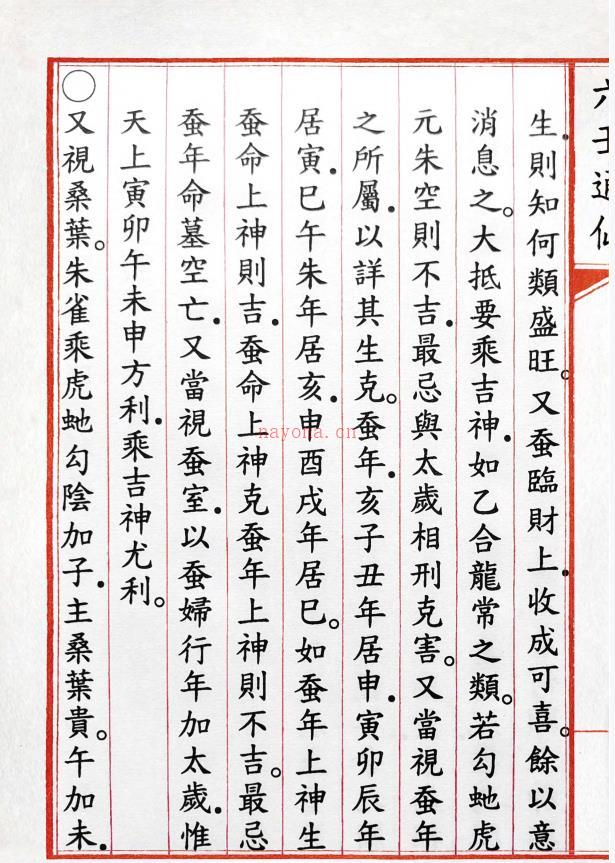 六壬通仙
生則知何類盛旺。又蚕臨財上.收成可喜。餘以意
消息之。大抵要乘吉神.如乙合龍常之類。若勾虵虎
元朱空則不吉.最忌與太歲相刑克害。又當視蚕年
之所屬.以詳其生克。蚕年.亥子丑年居申.寅卯辰年
居寅.巳午朱年居亥.申酉戌年居巳。如蚕年上神生
蚕命上神則吉.蚕命上神克蚕年上神則不吉。最忌
蚕年命墓空亡.又當視蚕室.以蚕婦行年加太歲.惟
天上寅卯午未申方利.乘吉神尤利。
○
又視桑葉。朱雀乘虎虵勾陰加子.主桑葉貴。午加未.
nayona.cn